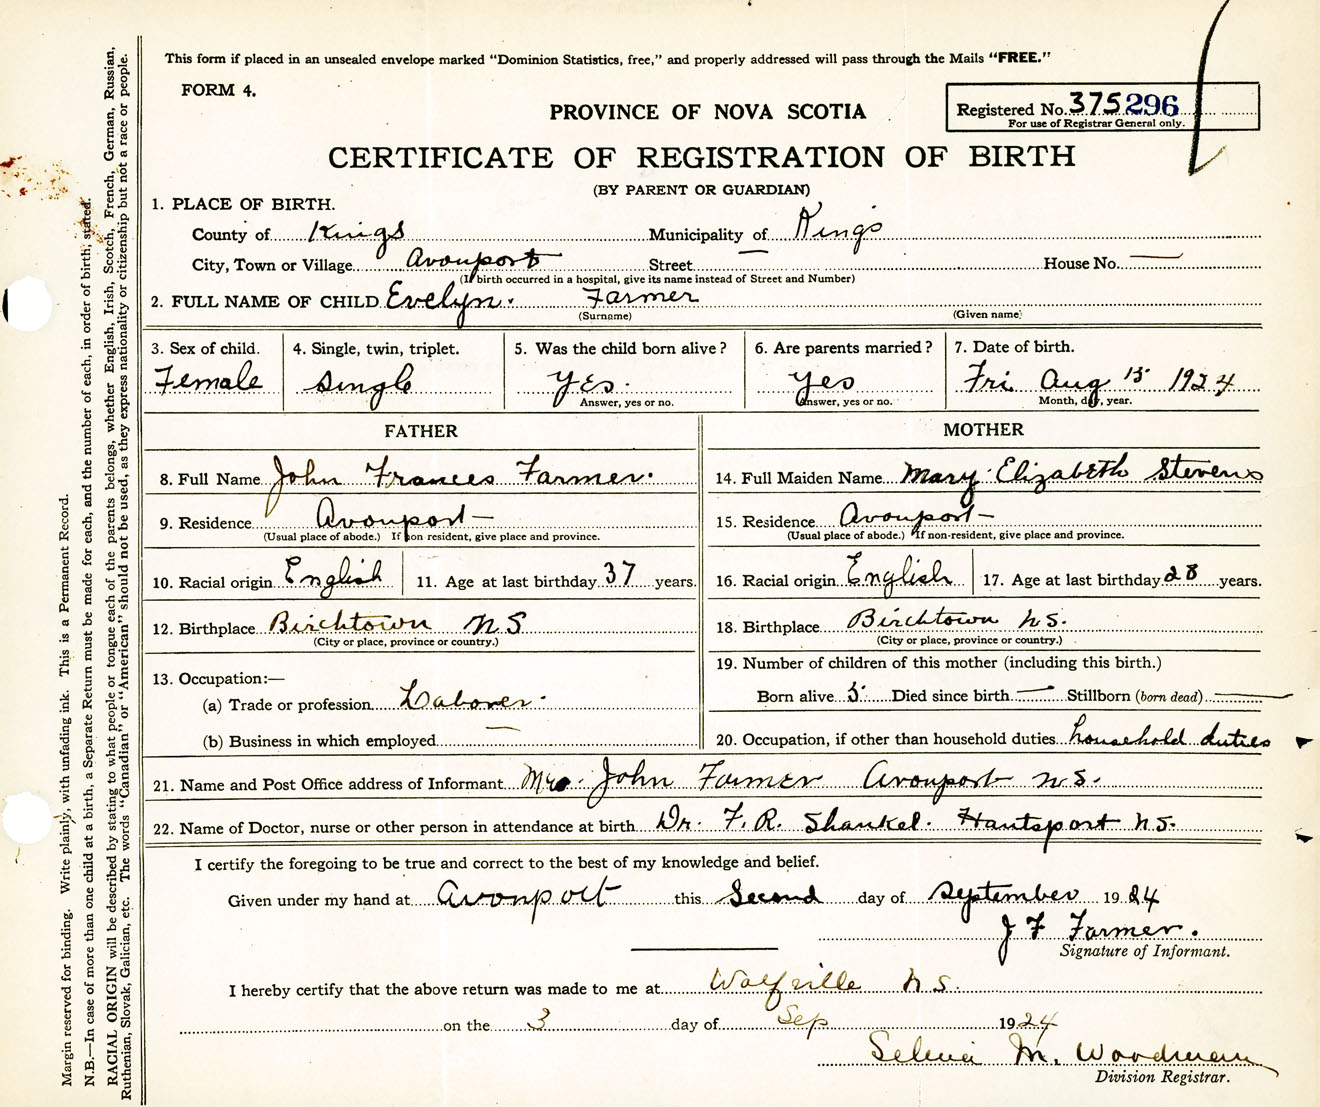 This form if placed in an unsealed envelope marked "Dominion Statistics, free," and properly addressed will pass through the Mails "FREE."
FORM 4.
PROVINCE OF NOVA SCOTIA
Registered No. 375296
For use of Registrar General only.
CERTIFICATE OF REGISTRATION OF BIRTH
(BY PARENT OR GUARDIAN)
1. PLACE OF BIRTH.
County of Kings Municipality of Kings
City, Town or Village Avonport Street — House No. —
(If birth occurred in a hospital, give its name instead of Street and Number)
2. FULL NAME OF CHILD Evelyn. Farmer
(Surname) (Given name)
3. Sex of child. 4. Single, twin, triplet. 5. Was the child born alive? 6. Are parents married? 7. Date of birth.
Female single Yes. Yes Fri Aug 15 1924
Answer, yes or no. Answer, yes or no. Month, day, year.
FATHER
8. Full Name John Frances Farmer.
9. Residence Avonport
(Usual place of abode.) If non-resident, give place and province.
10. Racial origin English 11. Age at last birthday 37 years.
12. Birthplace Birchtown N S
(City or place, province or country.)
13. Occupation:—
(a) Trade or profession Laborer.
(b) Business in which employed —
MOTHER
14. Full Maiden Name Mary Elizabeth Stevens
15. Residence Avonport
(Usual place of abode.) If non-resident, give place and province.
16. Racial origin English 17. Age at last birthday 28 years.
18. Birthplace Birchtown N.S.
(City or place, province or country.)
19. Number of children of this mother (including this birth.)
Born alive 5 Died since birth — Stillborn (born dead) —
20. Occupation, if other than household duties household duties
21. Name and Post Office address of Informant Mrs. John Farmer Avonport N.S.
22. Name of Doctor, nurse or other person in attendance at birth Dr. F. R. Shankel. Hantsport N.S.
I certify the foregoing to be true and correct to the best of my knowledge and belief.
Given under my hand at Avonport this Second day of September 1924
J F Farmer.
Signature of Informant.
I hereby certify that the above return was made to me at Wolfville N.S.
on the 3 day of Sep 1924
Selina M. Woodman
Division Registrar.
Margin reserved for binding. Write plainly, with unfading ink. This is a Permanent Record.
N.B.—In case of more than one child at a birth, a Separate Return must be made for each, and the number of each, in order of birth, stated.
RACIAL ORIGIN will be described by stating to what people or tongue each of the parents belongs, whether English, Irish, Scotch, French, German, Russian,
Ruthenian, Slovak, Galician, etc. The words "Canadian" or "American" should not be used, as they express nationality or citizenship but not a race or people.